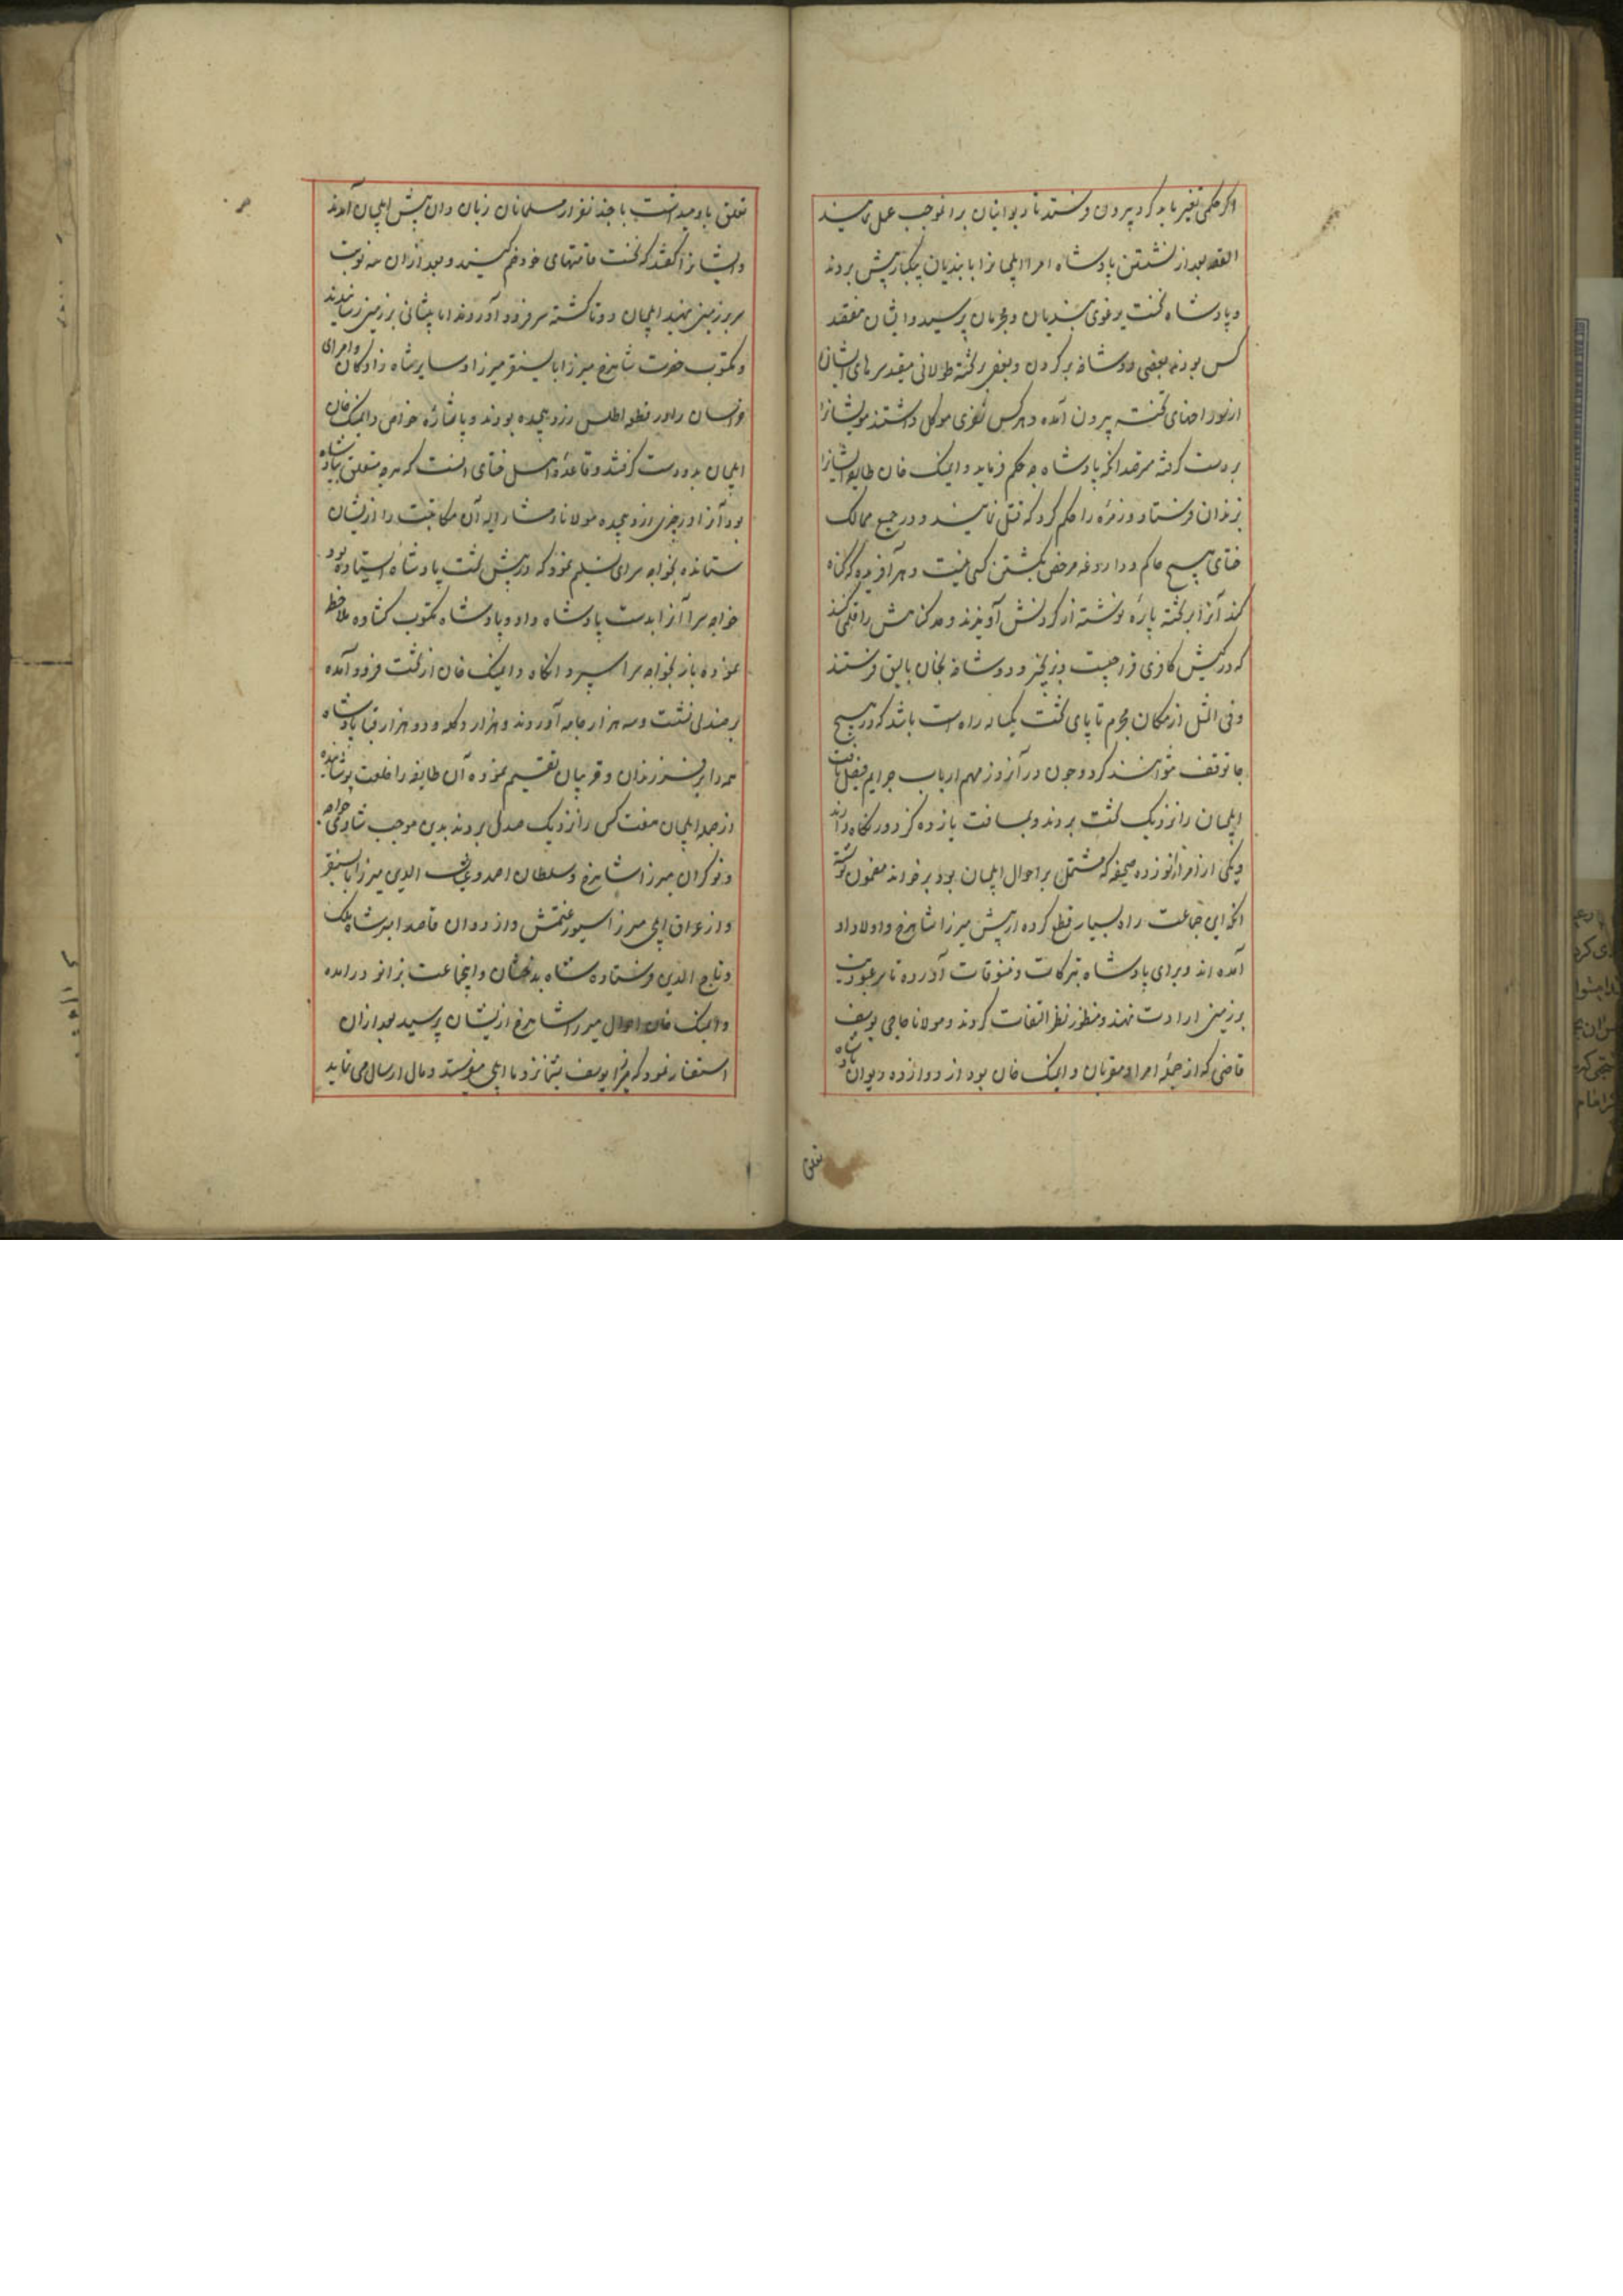 و اگر حکمی تغیر باید کرد بیرون فرستند تا دیوانیان برانموجب عمل نمایند
القصه بعد از نشستن پادشاه امرا ایلچیانرا با بندیان پیش بردند
و پادشاه نخست یرغوی بندیان و مجرمان پرسید و ایشان هفتصد
کس بودند بعضی دوشاخه بر گردن و بعضی بر تخته طولانی مقید سرهای ایشان
از سوراخهای تخته بیرون آمده و هر کس نفری موکل داشتند موی ایشانرا
بدست گرفته مترصد آنکه پادشاه چه حکم فرماید و دایمنک خان طایفه ایشانرا
بزندان فرستاد و زمره را حکم کرد که قتل نمایند و در جمیع ممالک
ختای هیچ حاکم و داروغه مرخص بکشتن کسی نیست و هر آفریده که گناه
کند آنرا بر تخته پاره نوشته از گردنش آویزند و حد گناهش را قلمی کنند
که در کیش کافری فراجیست و زنجیر و دوشاخه بخان بالیق فرستند
و فی المثل از مکان مجرم تا پای تخت یکساله راه است باشد که در هیچ
جا توقف نتوانند کرد و چون در آنروز مهم ارباب جرایم فیصل یافت
ایلچیان را نزدیک تخت بردند و بمسافت پانزده گز دور نگاه داشتند
و یکی از امرا زانو زده صحیفه که مشتمل بر احوال ایلچیان بود بر خواند مضمون آنکه
آنکه این جماعت راه بسیار قطع کرده از پیش میرزا شاهرخ و اولاد او
آمده اند و برای پادشاه تبرکات و تنسوقات آورده تا سر عبودیت
بر زمین ارادت نهند و منظور نظر التفات گردند و مولانا حاجی یوسف
قاضی که از جمله امرا و مقربان دایمنک خان بود از دوازده دیوان پادشاه
تعلق
تعلق باو میداشت با چند نفر از مسلمانان زبان دان پیش ایلچیان آمدند
و ایشانرا گفتند که نخست قامتهای خود خم کنید و بعد از آن سه نوبت
سر بر زمین نهید ایلچیان دوتا گشته سر فرود آوردند اما پیشانی بر زمین نرسانیدند
و مکتوب حضرت شاهرخ میرزا بایسنقر میرزا و سایر شاهزادگان و امرای
خراسان را در قطعه اطلس زرد پیچیده بودند و باشاره خواص دایمنک خان
ایلچیان بدو دست گرفتند و قاعده اهل ختای آنست که هر چه متعلق بپادشاه
بود آنرا در چیزی زرد پیچیده مولانا مشار الیه آن مکاتبت را از ایشان
ستانده بخواجه سرای تسلیم نمود که در پیش تخت پادشاه ایستاده بود
خواجه سرا آنرا بدست پادشاه داد و پادشاه مکتوب گشاده ملاحظه
نموده باز بخواجه سرا سپرد آنگاه دایمنک خان از تخت فرود آمده
بر صندلی نشست و سه هزار جامه آوردند و هزار دگله و دو هزار قبا پادشاه
همه را بر فرزندان و قریبان تقسیم نموده آن طایفه را خلعت پوشانیده
و از جمله ایلچیان هفت کس را نزدیک صندلی بردند بدین موجب شادی خواجه
و نوکران میرزا شاهرخ و سلطان احمد و غیاث الدین میرزا بایسنقر
و از عراق ایلچی میرزا سیورغتمش واردوان قاصد امیر شاه ملک
و تاج الدین فرستاده شاه بدخشان و اینجماعت بزانو در آمده
دایمنک خان احوال میرزا شاهرخ از ایشان پرسید بعد از آن
استفسار نمود که قرا یوسف بشما نزد ما ایلچی میفرستد و مال ارسال می نماید